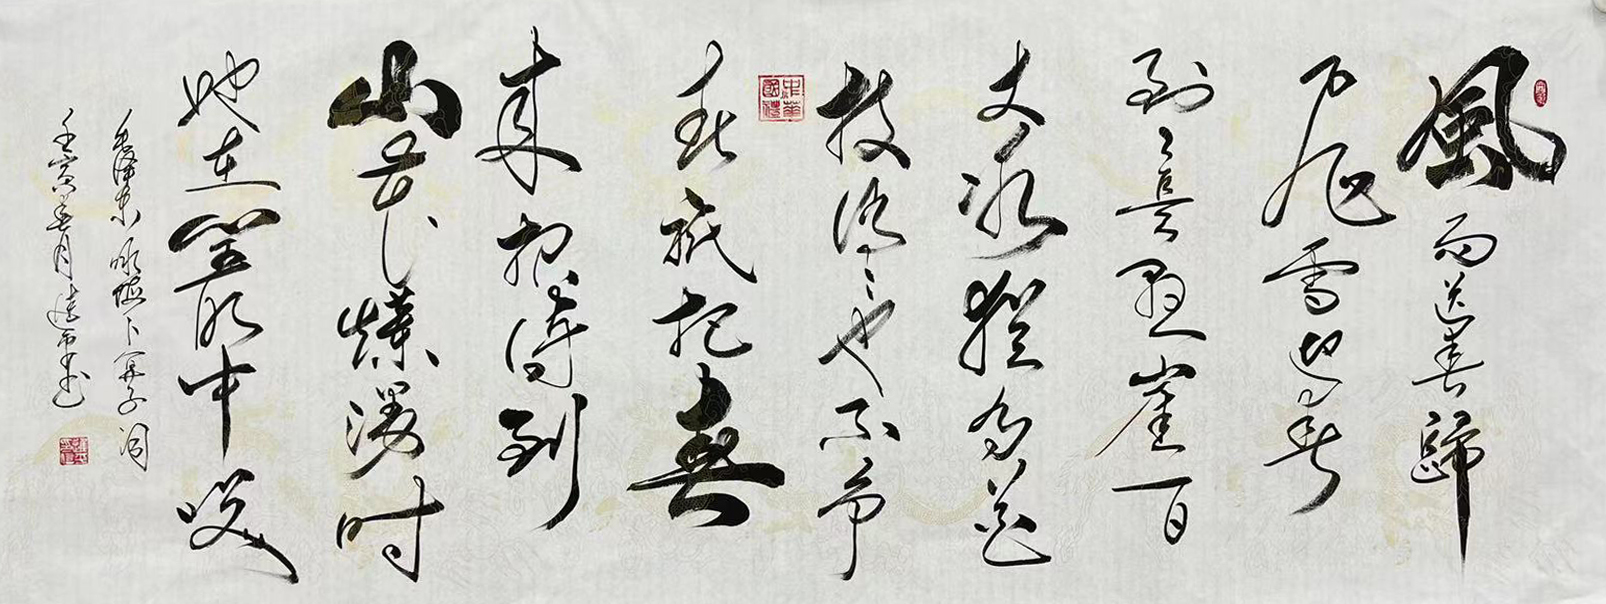 風雨送春歸
飛雪迎春
到已是懸崖百
丈冰猶有花
枝俏俏也不爭
春祇把春
來報待到
山花爛漫時
她在叢中咲
毛澤東咏梅卜算子词
壬寅春月书
中華國禮